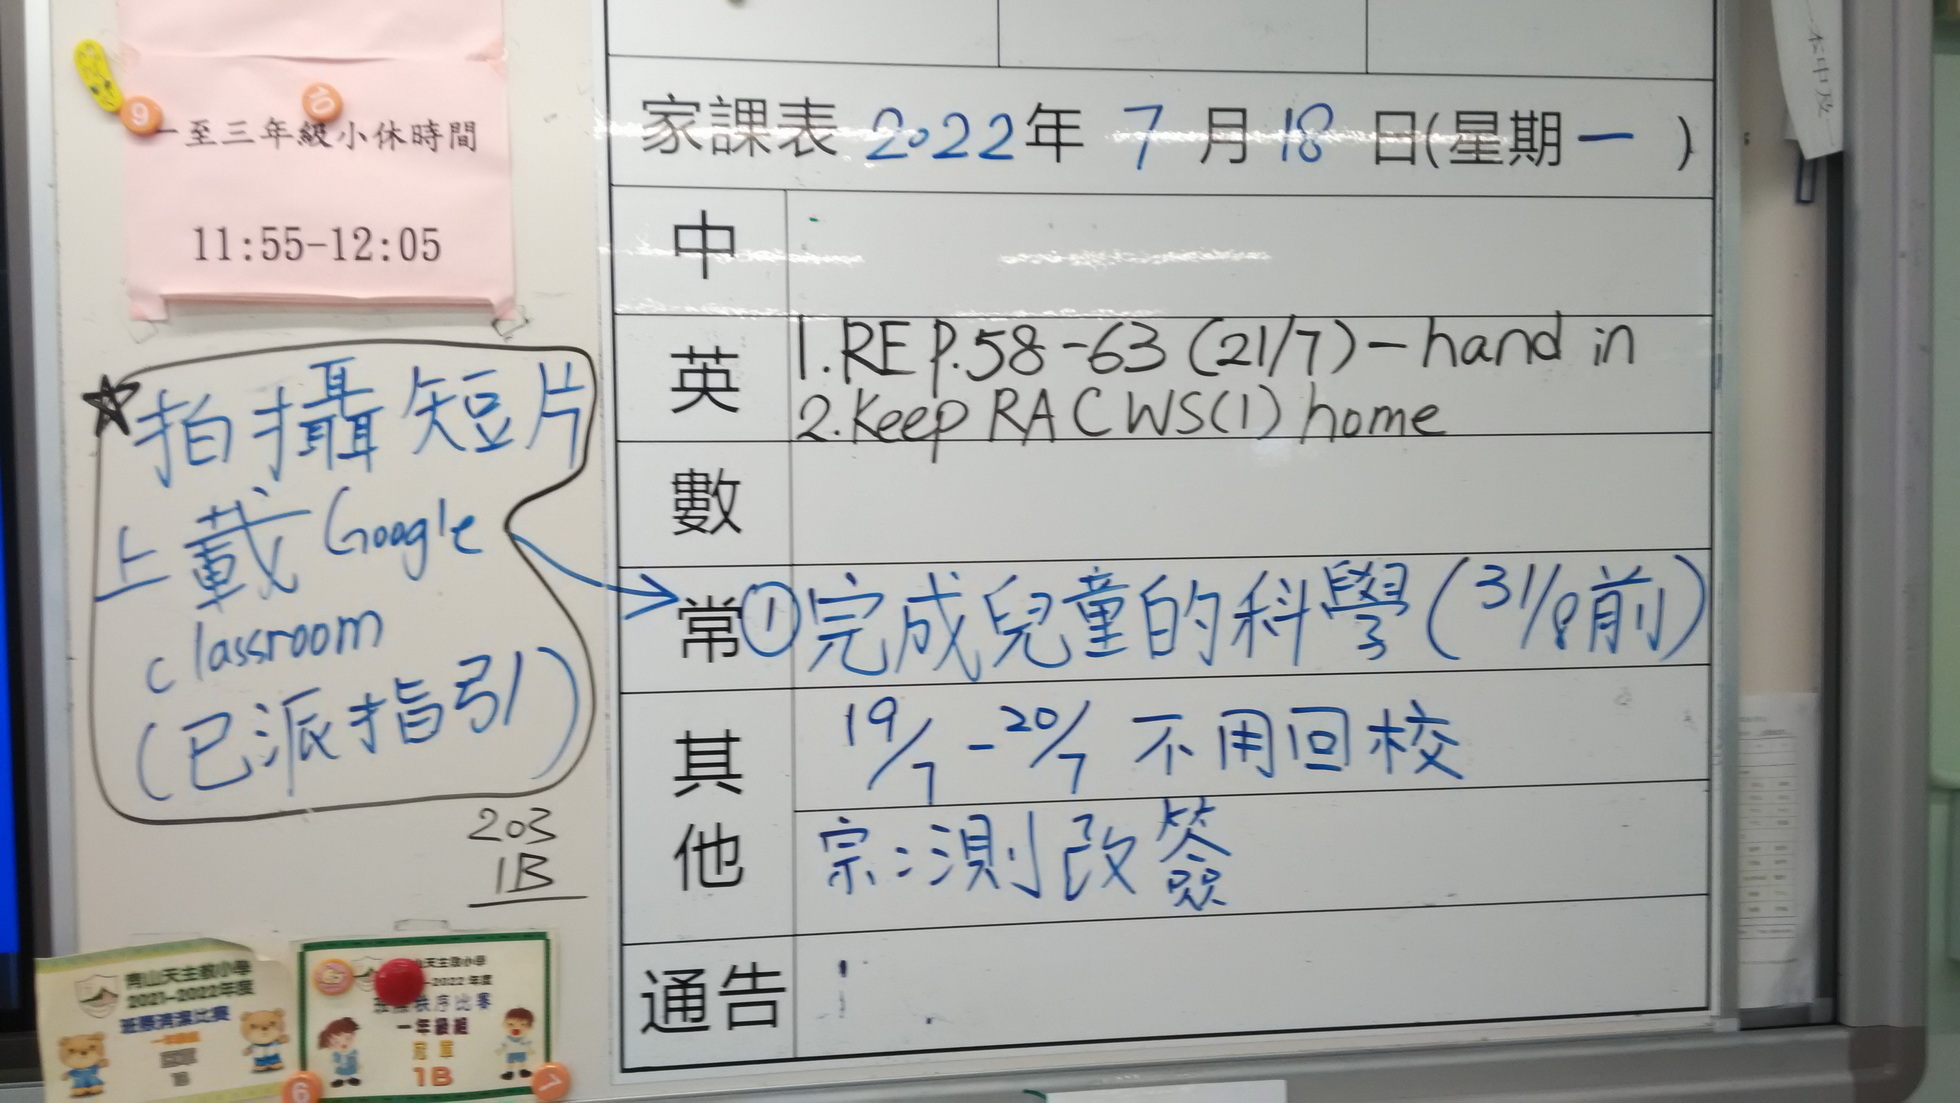 一至三年級小休時間
11:55-12:05
家課表 2022年 7月 18日(星期一)
中
英
1. RE P.58-63 (21/7) - hand in
2. Keep RA C WS(1) home
數
常
① 完成兒童的科學 (31/8前)
其他
19/7 - 20/7 不用回校
宗:測改簽
通告
★拍攝短片
上載 Google
classroom
(已派指引)
203
1B
青山天主教小學
2021-2022年度
班際清潔比賽
1B
山天主教小學
-2022年度
秩序比賽
一年級組
冠軍
1B